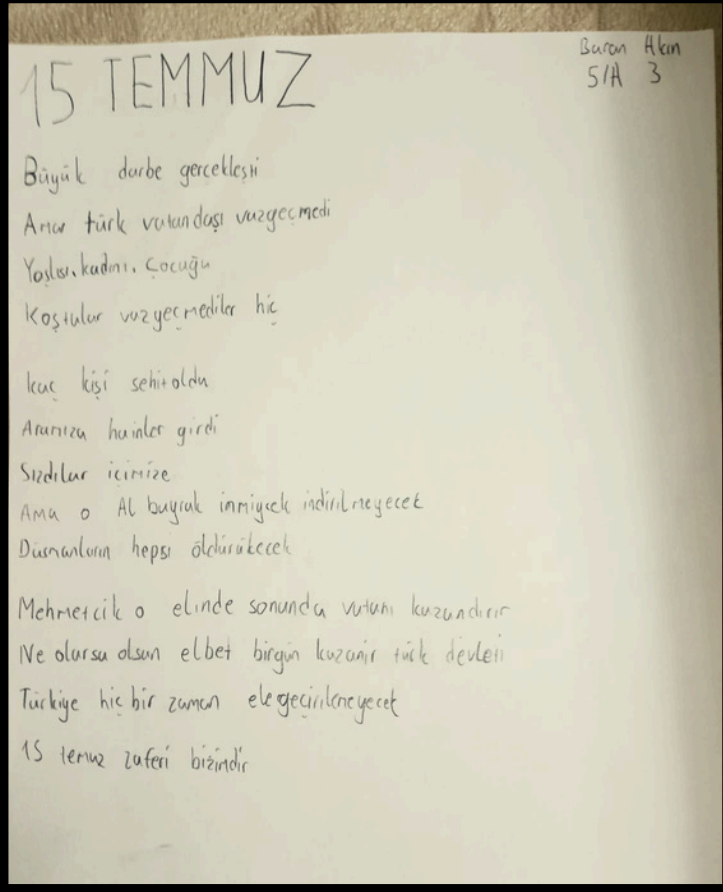 15 TEMMUZ
Buran Akın
5/A 3
Büyük darbe gerçekleşti
Ama türk vatandaşı vazgeçmedi
Yaşlısı, kadını, Çocuğu
Koştular vazgeçmediler hiç
kaç kişi sehit oldu
Aramıza hainler girdi
Sızdılar içimize
Ama o Al bayrak inmiycek indirilmeyecek
Düsmanların hepsi öldürülecek
Mehmetcik o elinde sonunda vatanı kazandırır
Ne olursa olsun elbet birgün kazanir türk devleti
Türkiye hiç bir zaman ele geçirilemeyecek
15 temuz zaferi bizimdir